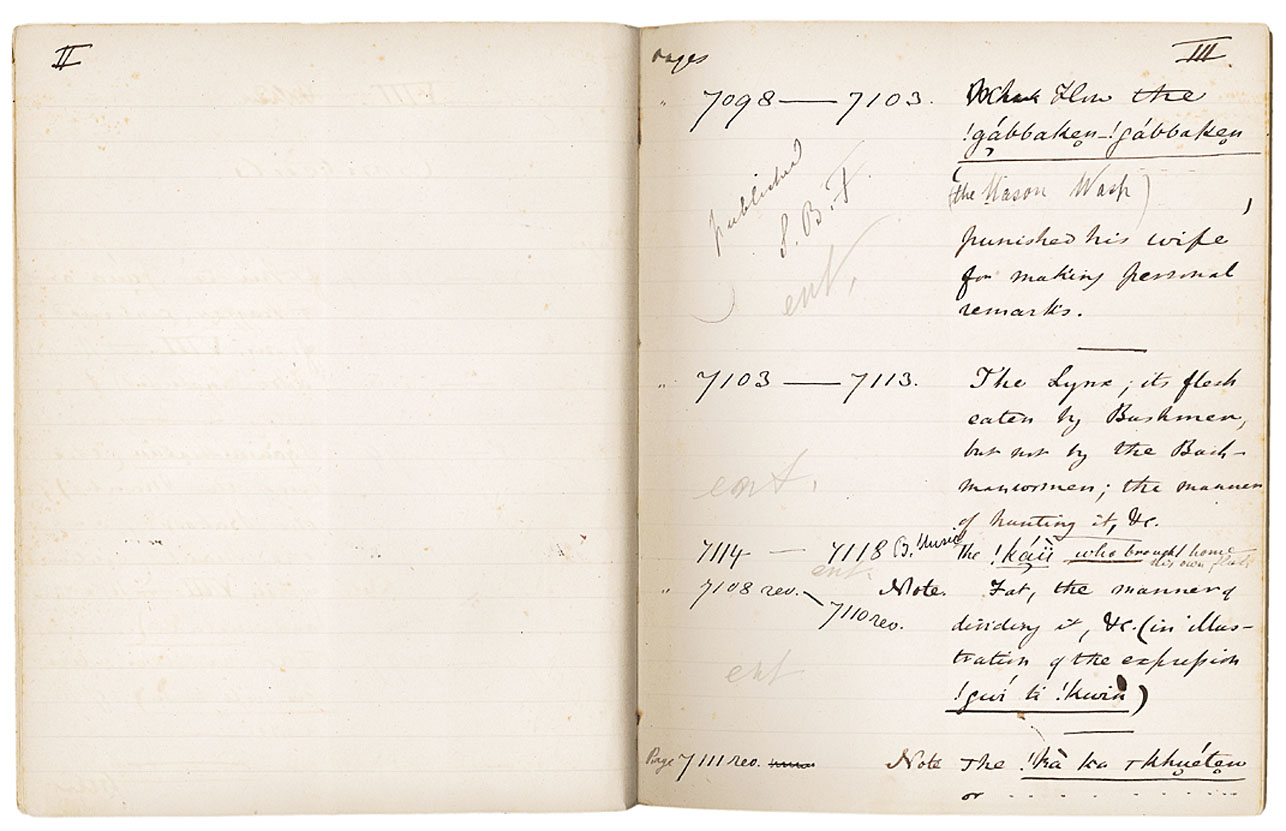 II
pages
III
" 7098 — 7103. How the
!gábbaken-!gábbaken
(the Mason Wasp)
published
S. B. F.
ent.
punished his wife
for making personal
remarks.
" 7103 — 7113. The Lynx; its flesh
eaten by Bushmen,
but not by the Bush-
manwomen; the manner
ent.
of hunting it, &c.
7114 — 7118 the who brought home
his own flesh
ent.
" 7108 rev. Note. Fat, the manner of
7110 rev.
dividing it, &c. (in illus-
tration of the expression
ent
!gwi ti !kwiń)
Page 7111 rev. Note The !kà ka
or - - - - - - - - - -